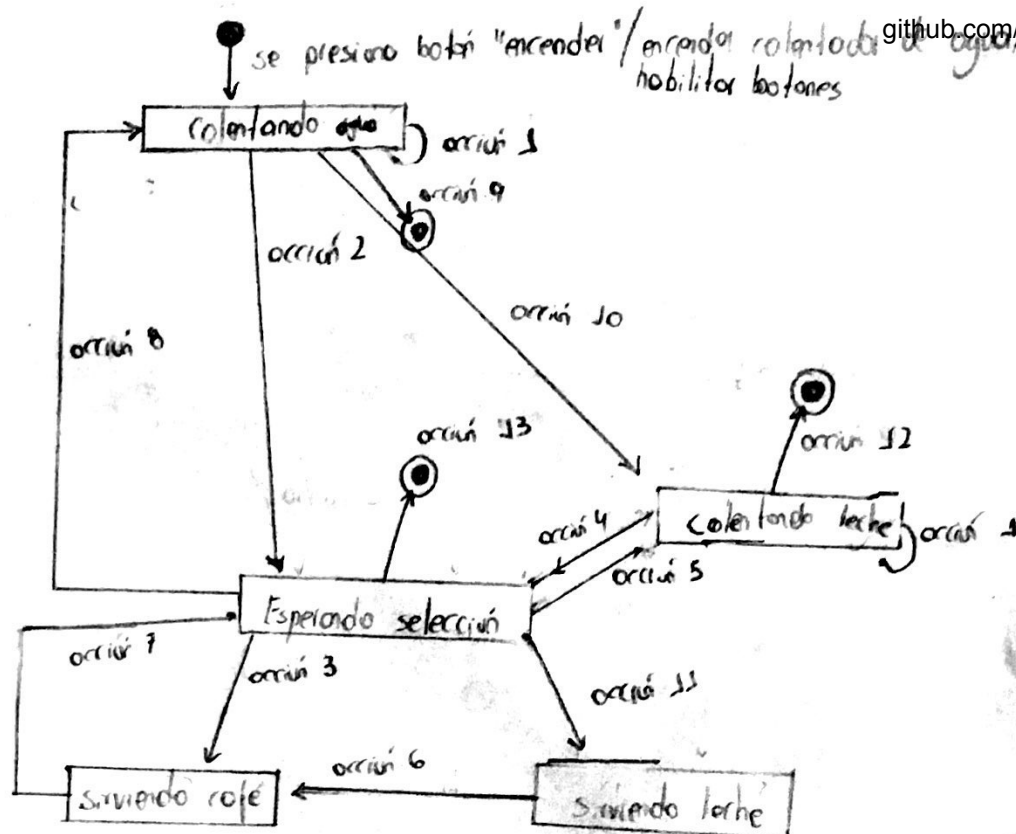 github.com/
se presiono botón "encender"/ encender calentador de agua,
habilitar botones
Calentando agua
acción 1
acción 9
acción 2
acción 10
acción 8
acción 13
acción 12
acción 4
Calentando leche
acción 1
acción 5
Esperando selección
acción 7
acción 3
acción 11
acción 6
Sirviendo café
Sirviendo leche